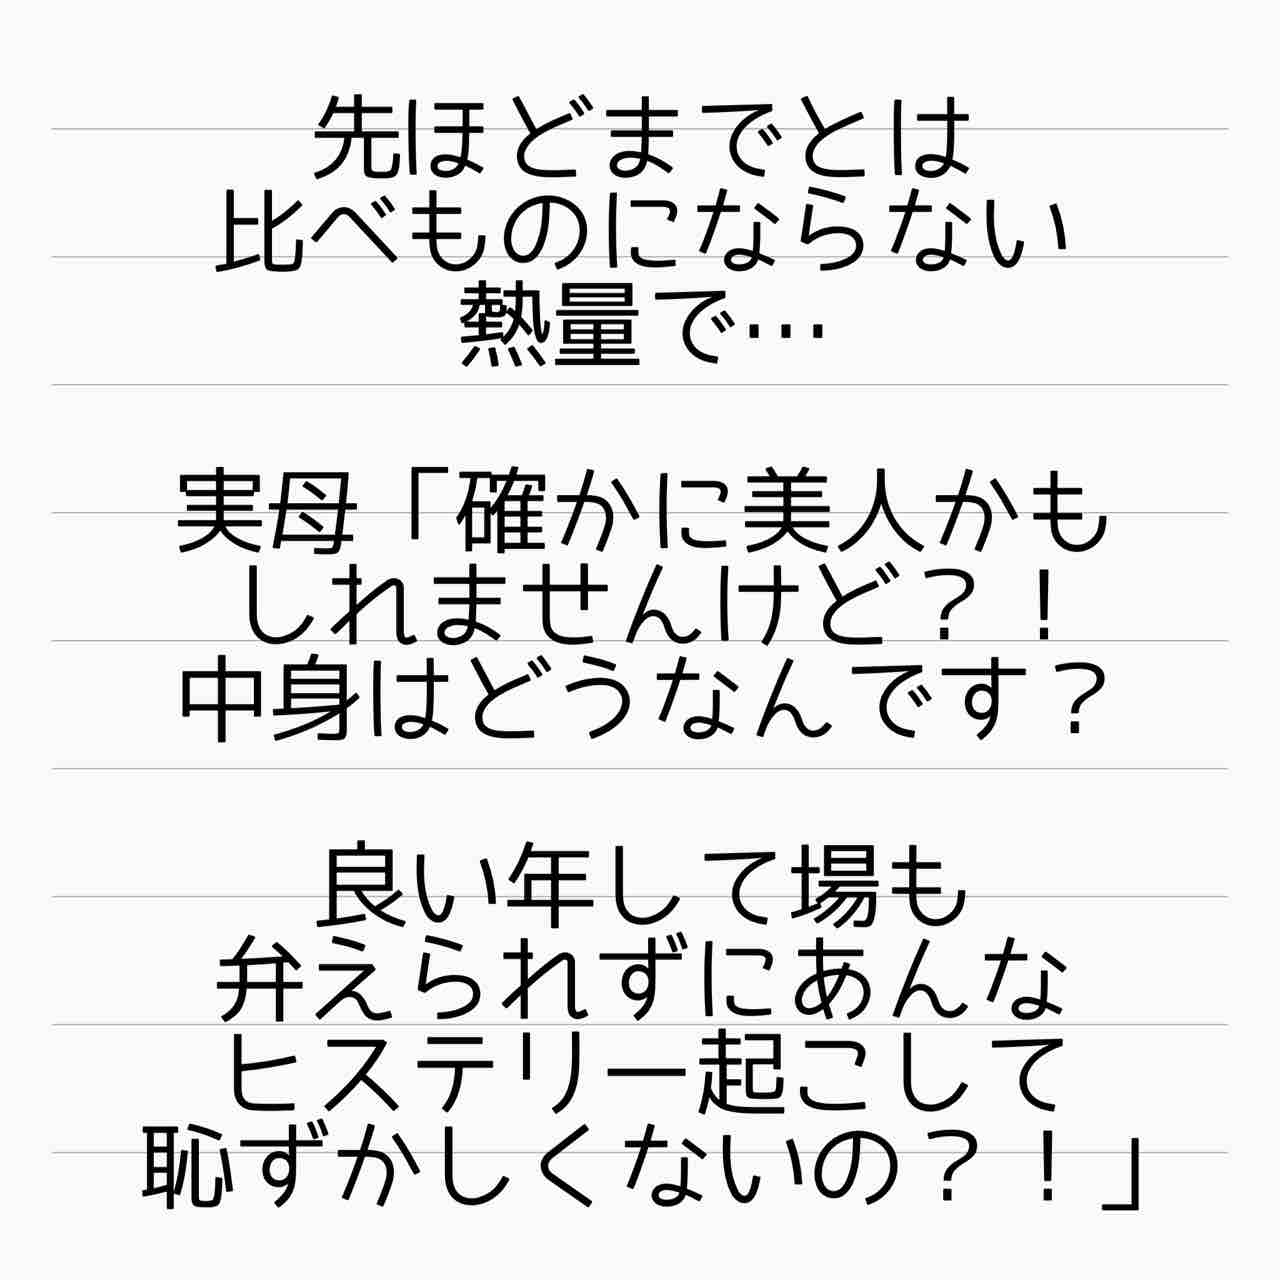 先ほどまでとは
比べものにならない
熱量で…
実母「確かに美人かも
しれませんけど？！
中身はどうなんです？
良い年して場も
弁えられずにあんな
ヒステリー起こして
恥ずかしくないの？！」